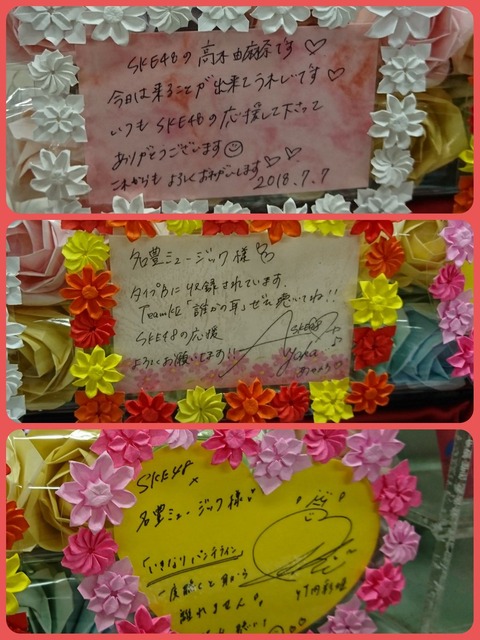 SKE48の高木由麻奈です♡
今日は来ることが出来てうれしいです♡
いつもSKE48の応援して下さって
ありがとうございます
これからもよろしくおねがいします♡♡
2018.7.7
名豊ミュージック様
タイプBに収録されています。
TeamKII「誰かの耳」ぜひ聴いてね!!
SKE48の応援
よろしくお願いします!!
SKE48
Yuka
SKE48
×
名豊ミュージック様
「いきなりパンチライン」
一度聴くと耳から
離れません。